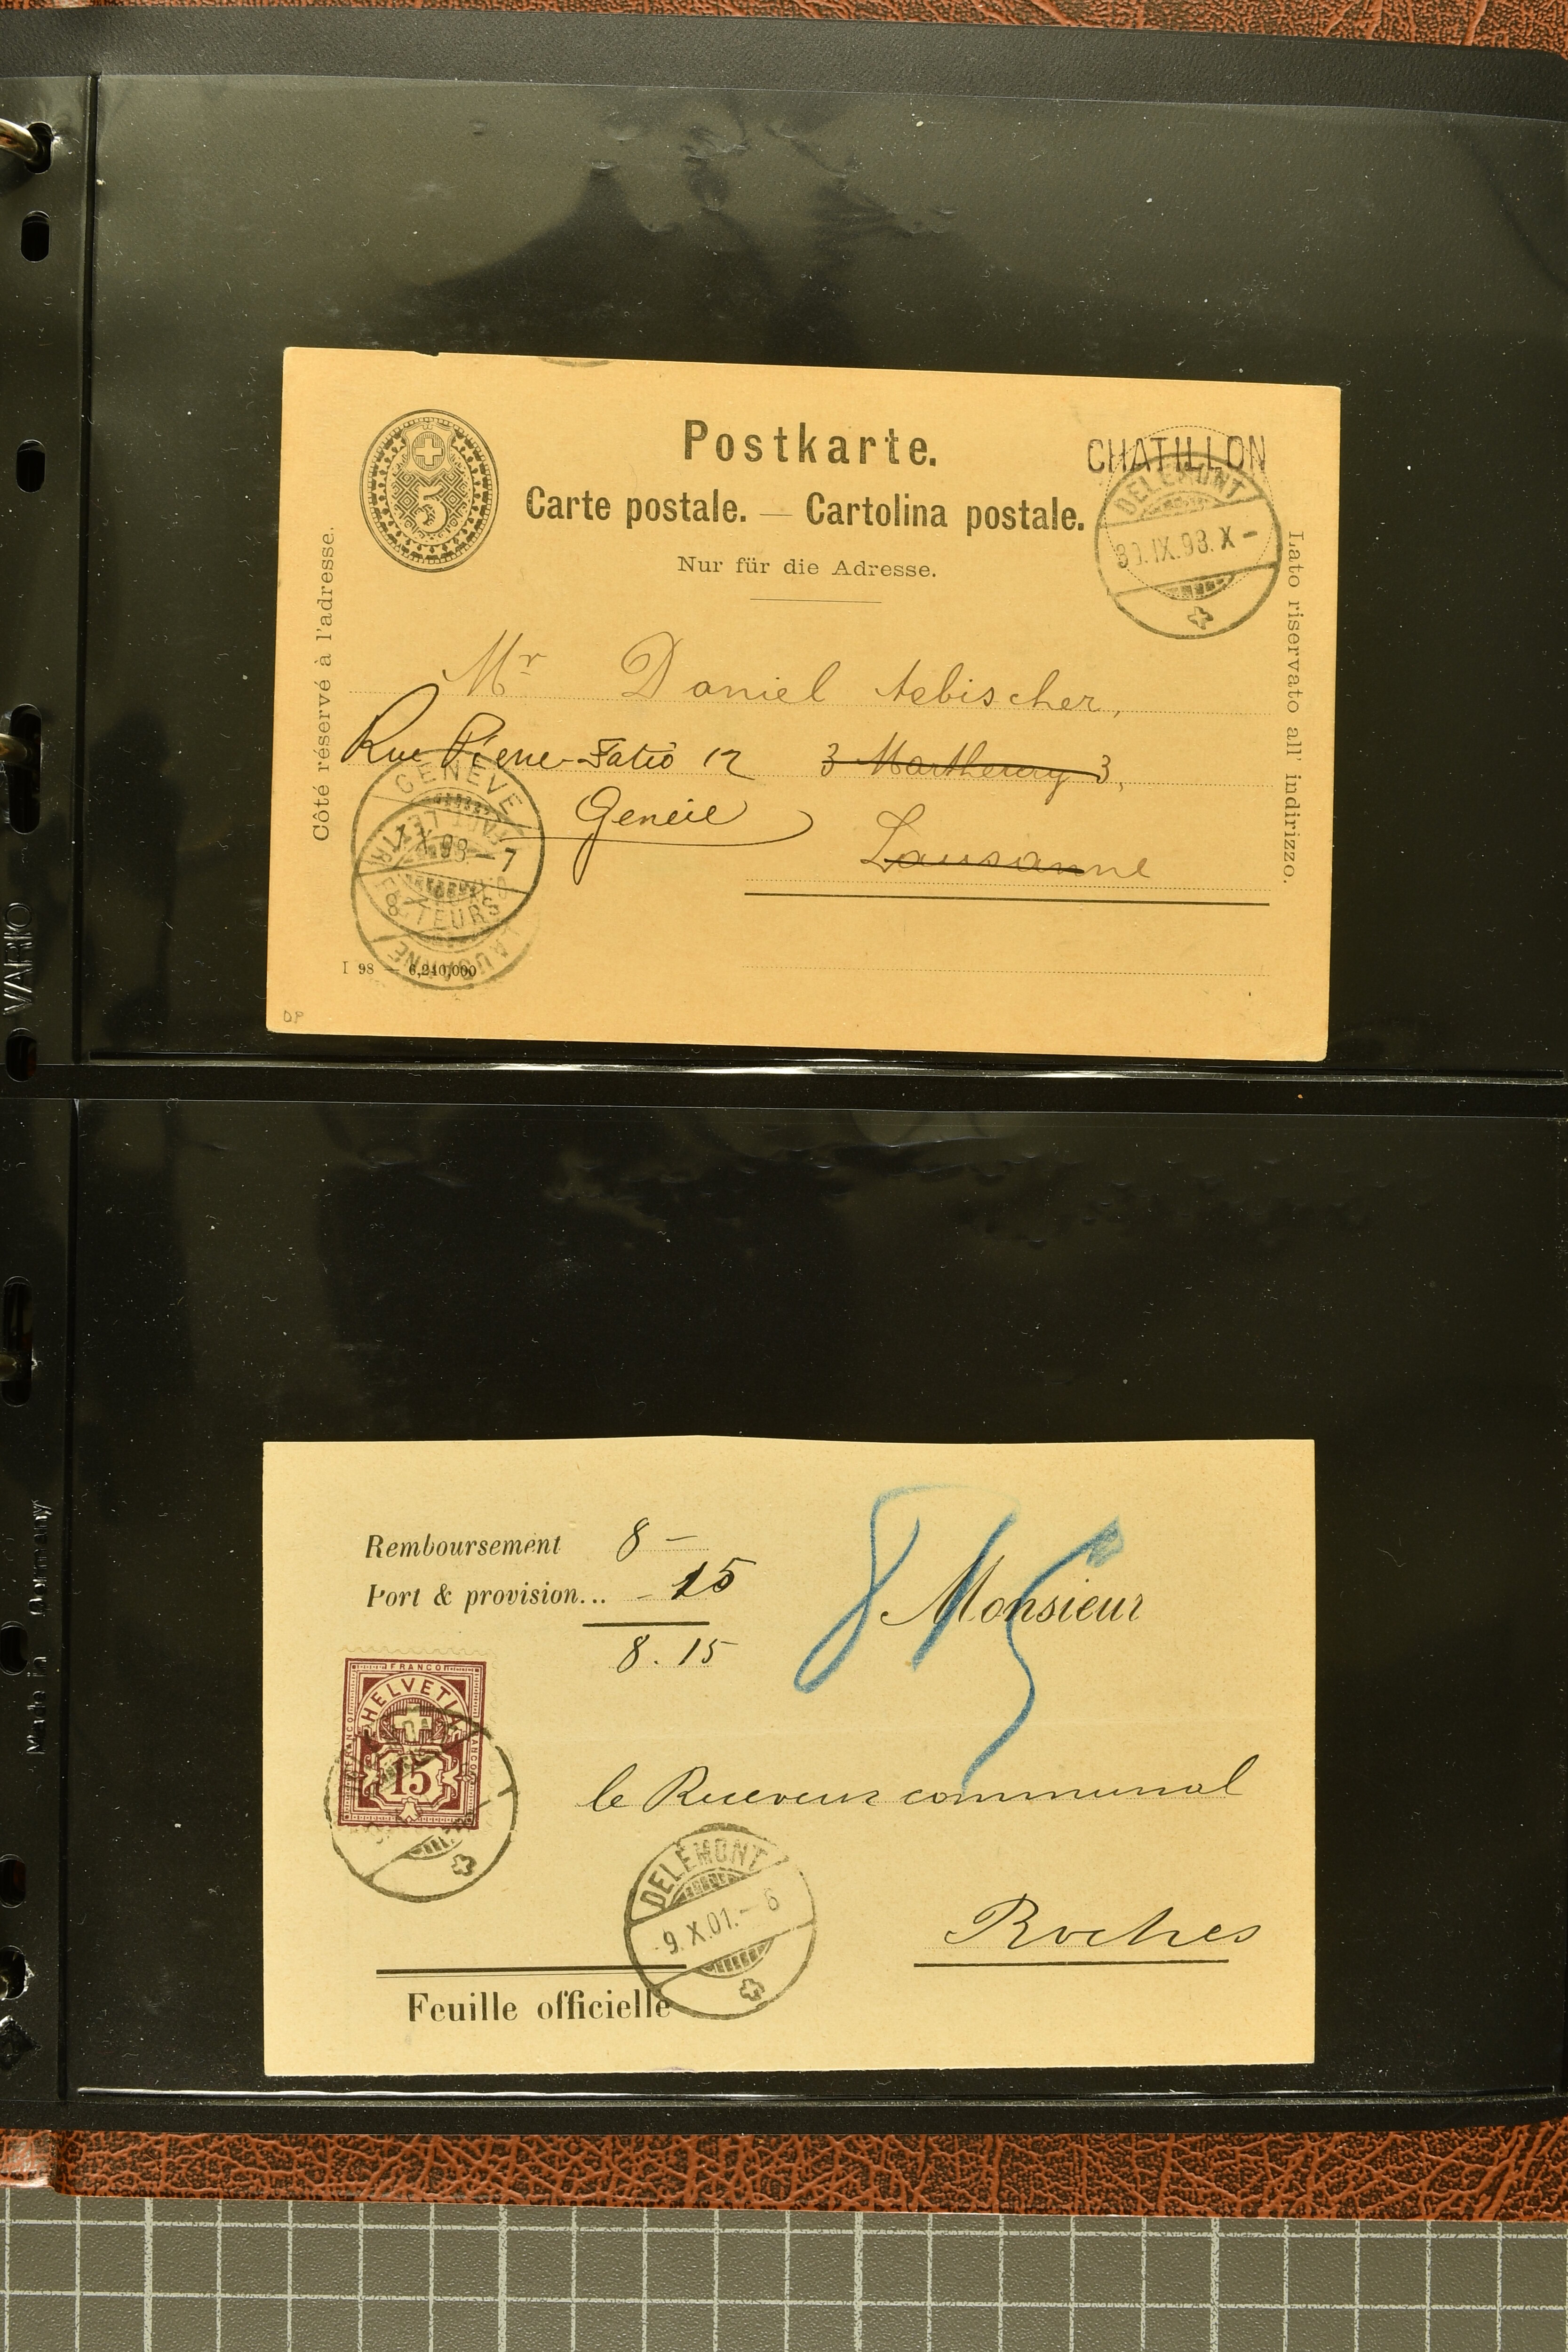 5
Postkarte.
CHATILLON
Carte postale. — Cartolina postale.
DELÉMONT
30.IX.98.X–
Nur für die Adresse.
Côté réservé à l'adresse.
Lato riservato all' indirizzo.
Mr Daniel Aebischer,
Rue Pierre-Fatio 12
3 3,
Genève
Lausanne
GENÈVE
X.98.–7
FACTEURS
LAUSANNE
I 98 — 6,210,000
DP
VARIO
Remboursement 8 –
Port & provision... – 15
8.15
815
Monsieur
FRANCO
HELVETIA
15
le Receveur communal
DELÉMONT
9.X.01.– 6
Roches
Feuille officielle
Made in Germany